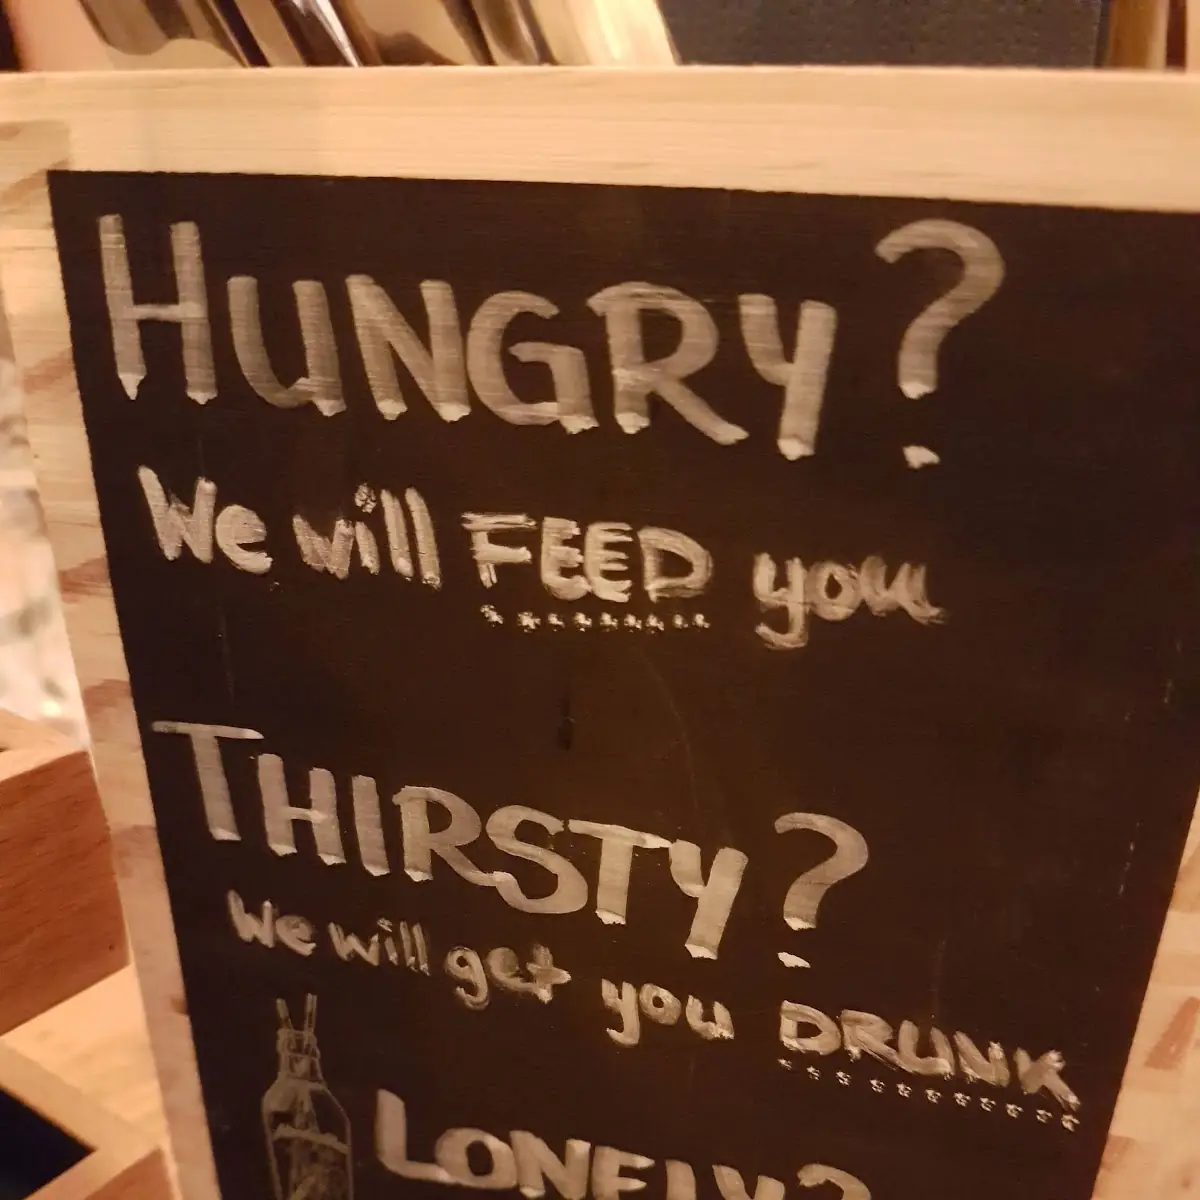 HUNGRY?
We will FEED you
THIRSTY?
We will get you DRUNK
LONELY?